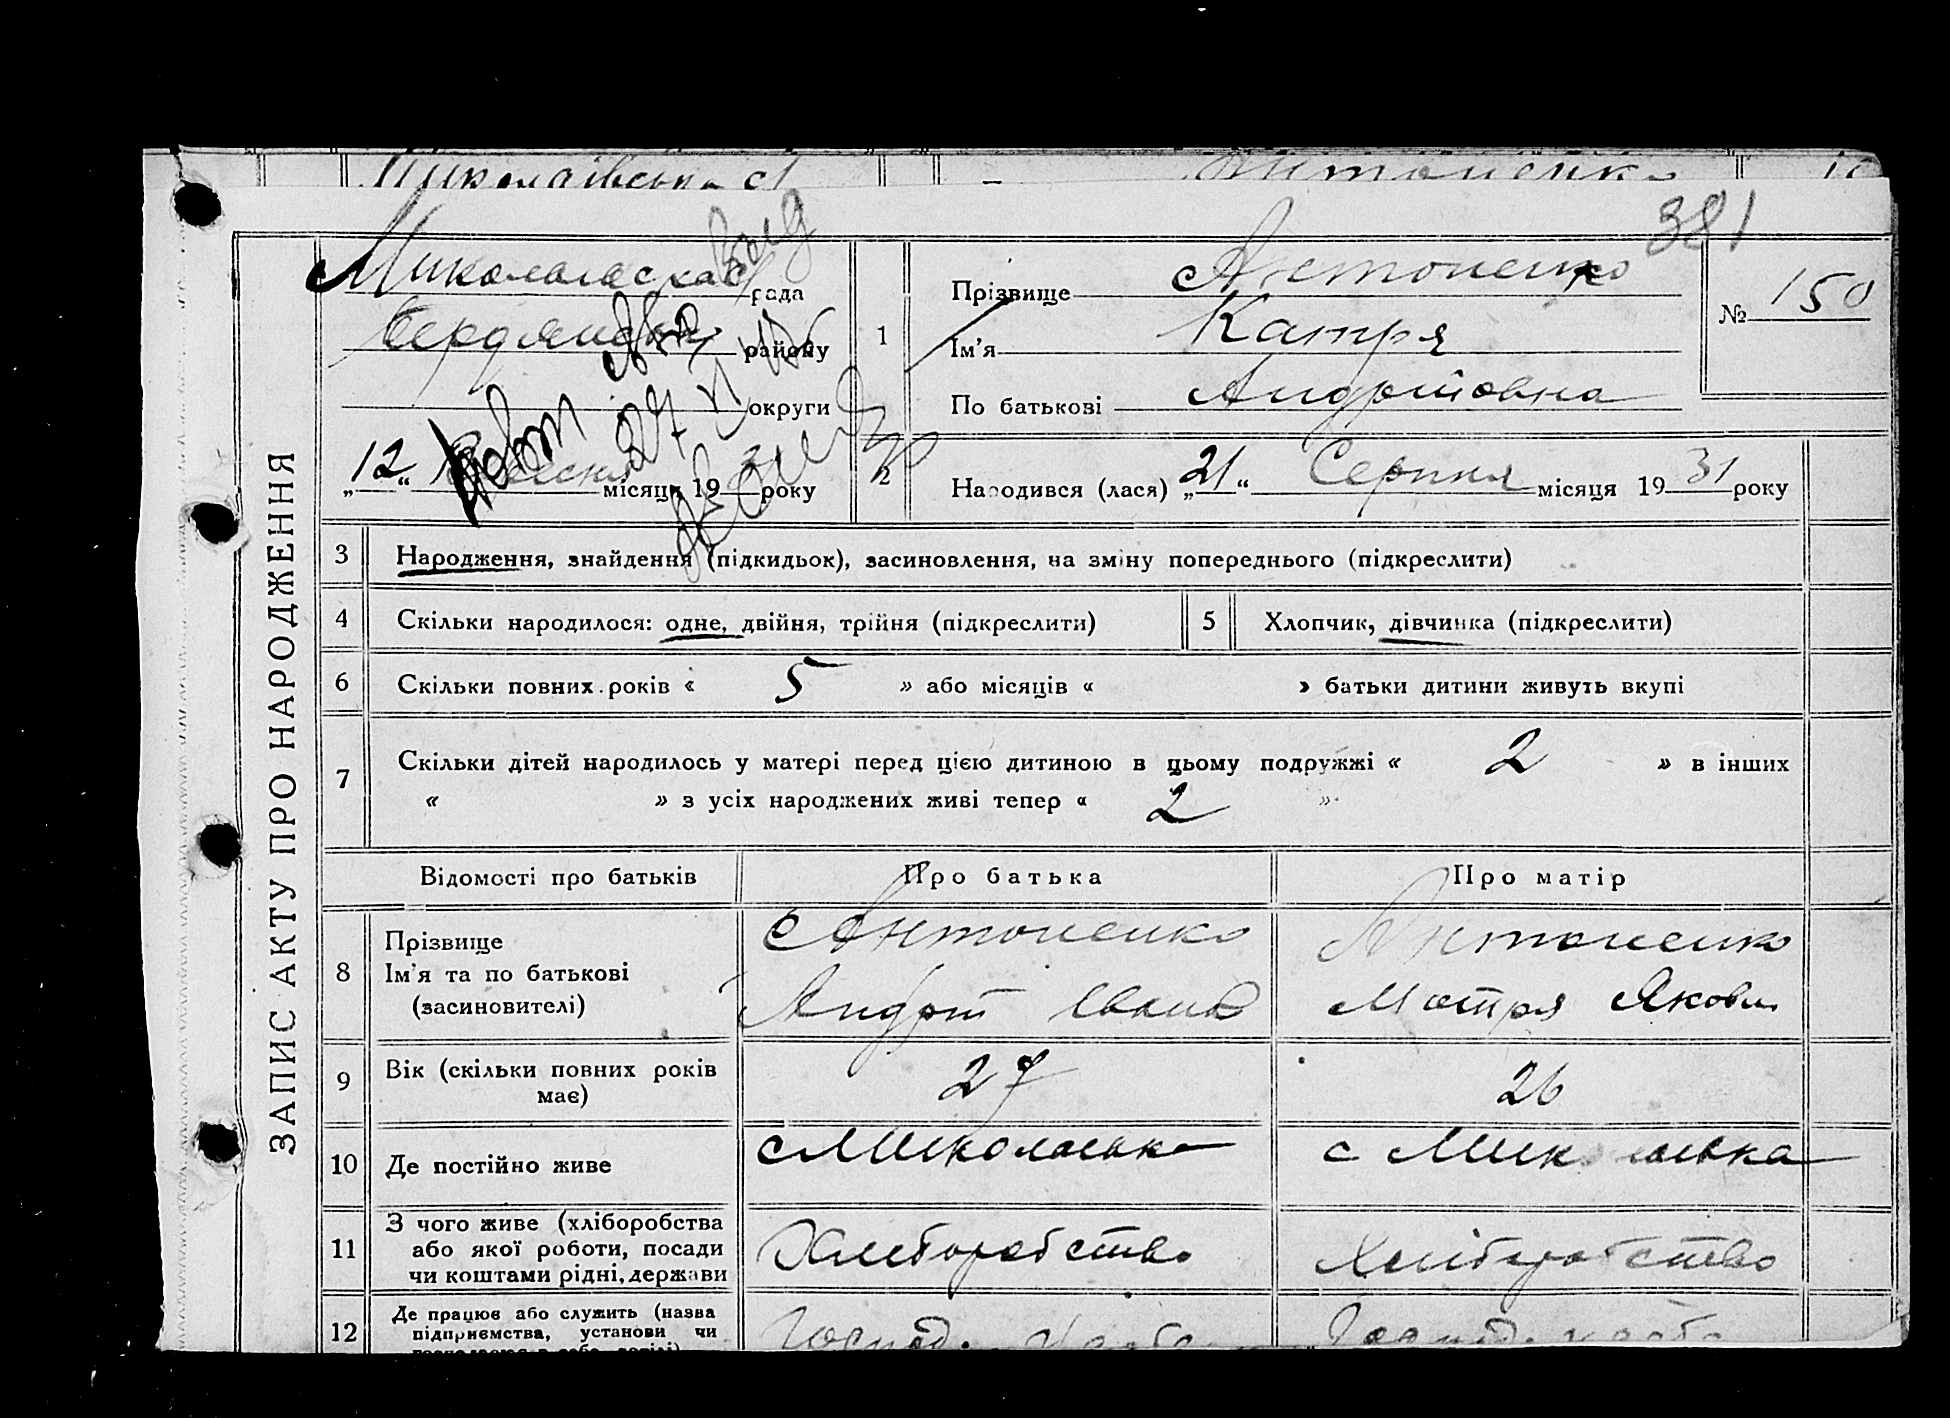 Антоненко
381
рада
Прізвище Антоненко
№ 150
району
1
Ім'я Катря
округи
По батькові Андріівна
„12“ місяця 19 31 року
2
Народився (лася) „21“ Серпня місяця 19 31 року
ЗАПИС АКТУ ПРО НАРОДЖЕННЯ
3 Народження, знайдення (підкидьок), засиновлення, на зміну попереднього (підкреслити)
4 Скільки народилося: одне, двійня, трійня (підкреслити) 5 Хлопчик, дівчинка (підкреслити)
6 Скільки повних років « 5 » або місяців « » батьки дитини живуть вкупі
7 Скільки дітей народилось у матері перед цією дитиною в цьому подружжі « 2 » в інших
« » з усіх народжених живі тепер « 2 »
Відомості про батьків Про батька Про матір
8 Прізвище Антоненко Антоненко
Ім'я та по батькові Андрій Иванов Мотря Яковл
(засиновителі)
9 Вік (скільки повних років має) 27 26
10 Де постійно живе с Миколаєвка с Миколаєвка
11 З чого живе (хліборобства
або якої роботи, посади Хліборобство Хліборобство
чи коштами рідні, держави
12 Де працює або служить (назва
підприємства, установи чи